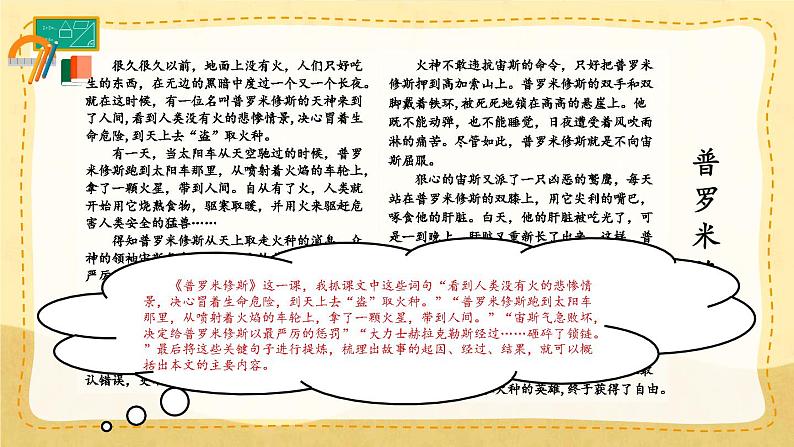 很久很久以前，地面上没有火，人们只好吃
生的东西，在无边的黑暗中度过一个又一个长夜。
就在这时候，有一位名叫普罗米修斯的天神来到
了人间,看到人类没有火的悲惨情景,决心冒着生
命危险,到天上去“盗”取火种。
有一天，当太阳车从天空驰过的时候，普罗
米修斯跑到太阳车那里，从喷射着火焰的车轮上，
拿了一颗火星，带到人间。自从有了火，人类就
开始用它烧熟食物，驱寒取暖，并用火来驱赶危
害人类安全的猛兽……
得知普罗米修斯从天上取走火种的消息，众
神的领袖宙斯
严厉
认错误，
火神不敢违抗宙斯的命令，只好把普罗米
修斯押到高加索山上。普罗米修斯的双手和双
脚戴着铁环,被死死地锁在高高的悬崖上。他
既不能动弹，也不能睡觉，日夜遭受着风吹雨
淋的痛苦。尽管如此，普罗米修斯就是不向宙
斯屈服。
狠心的宙斯又派了一只凶恶的鹫鹰，每天
站在普罗米修斯的双膝上，用它尖利的嘴巴，
啄食他的肝脏。白天，他的肝脏被吃光了，可
是一到晚上，肝脏又重新长了出来。这样，普
火种的英雄,终于获得了自由。
普罗米
《普罗米修斯》这一课，我抓课文中这些词句“看到人类没有火的悲惨情
景，决心冒着生命危险，到天上去“盗”取火种。”“普罗米修斯跑到太阳车
那里，从喷射着火焰的车轮上，拿了一颗火星，带到人间。”“宙斯气急败坏，
决定给普罗米修斯以最严厉的惩罚”“大力士赫拉克勒斯经过……砸碎了锁链。
”最后将这些关键句子进行提炼，梳理出故事的起因、经过、结果，就可以概
括出本文的主要内容。